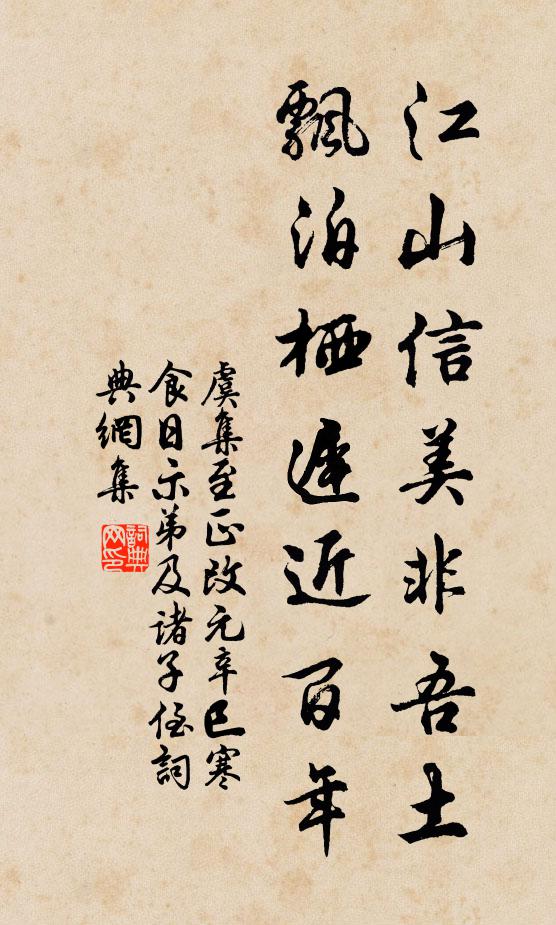 江山信美非吾土
飄泊栖遲近百年
虞集至正改元辛巳寒
食日示弟及諸子侄詞
典網集
詞典
网印